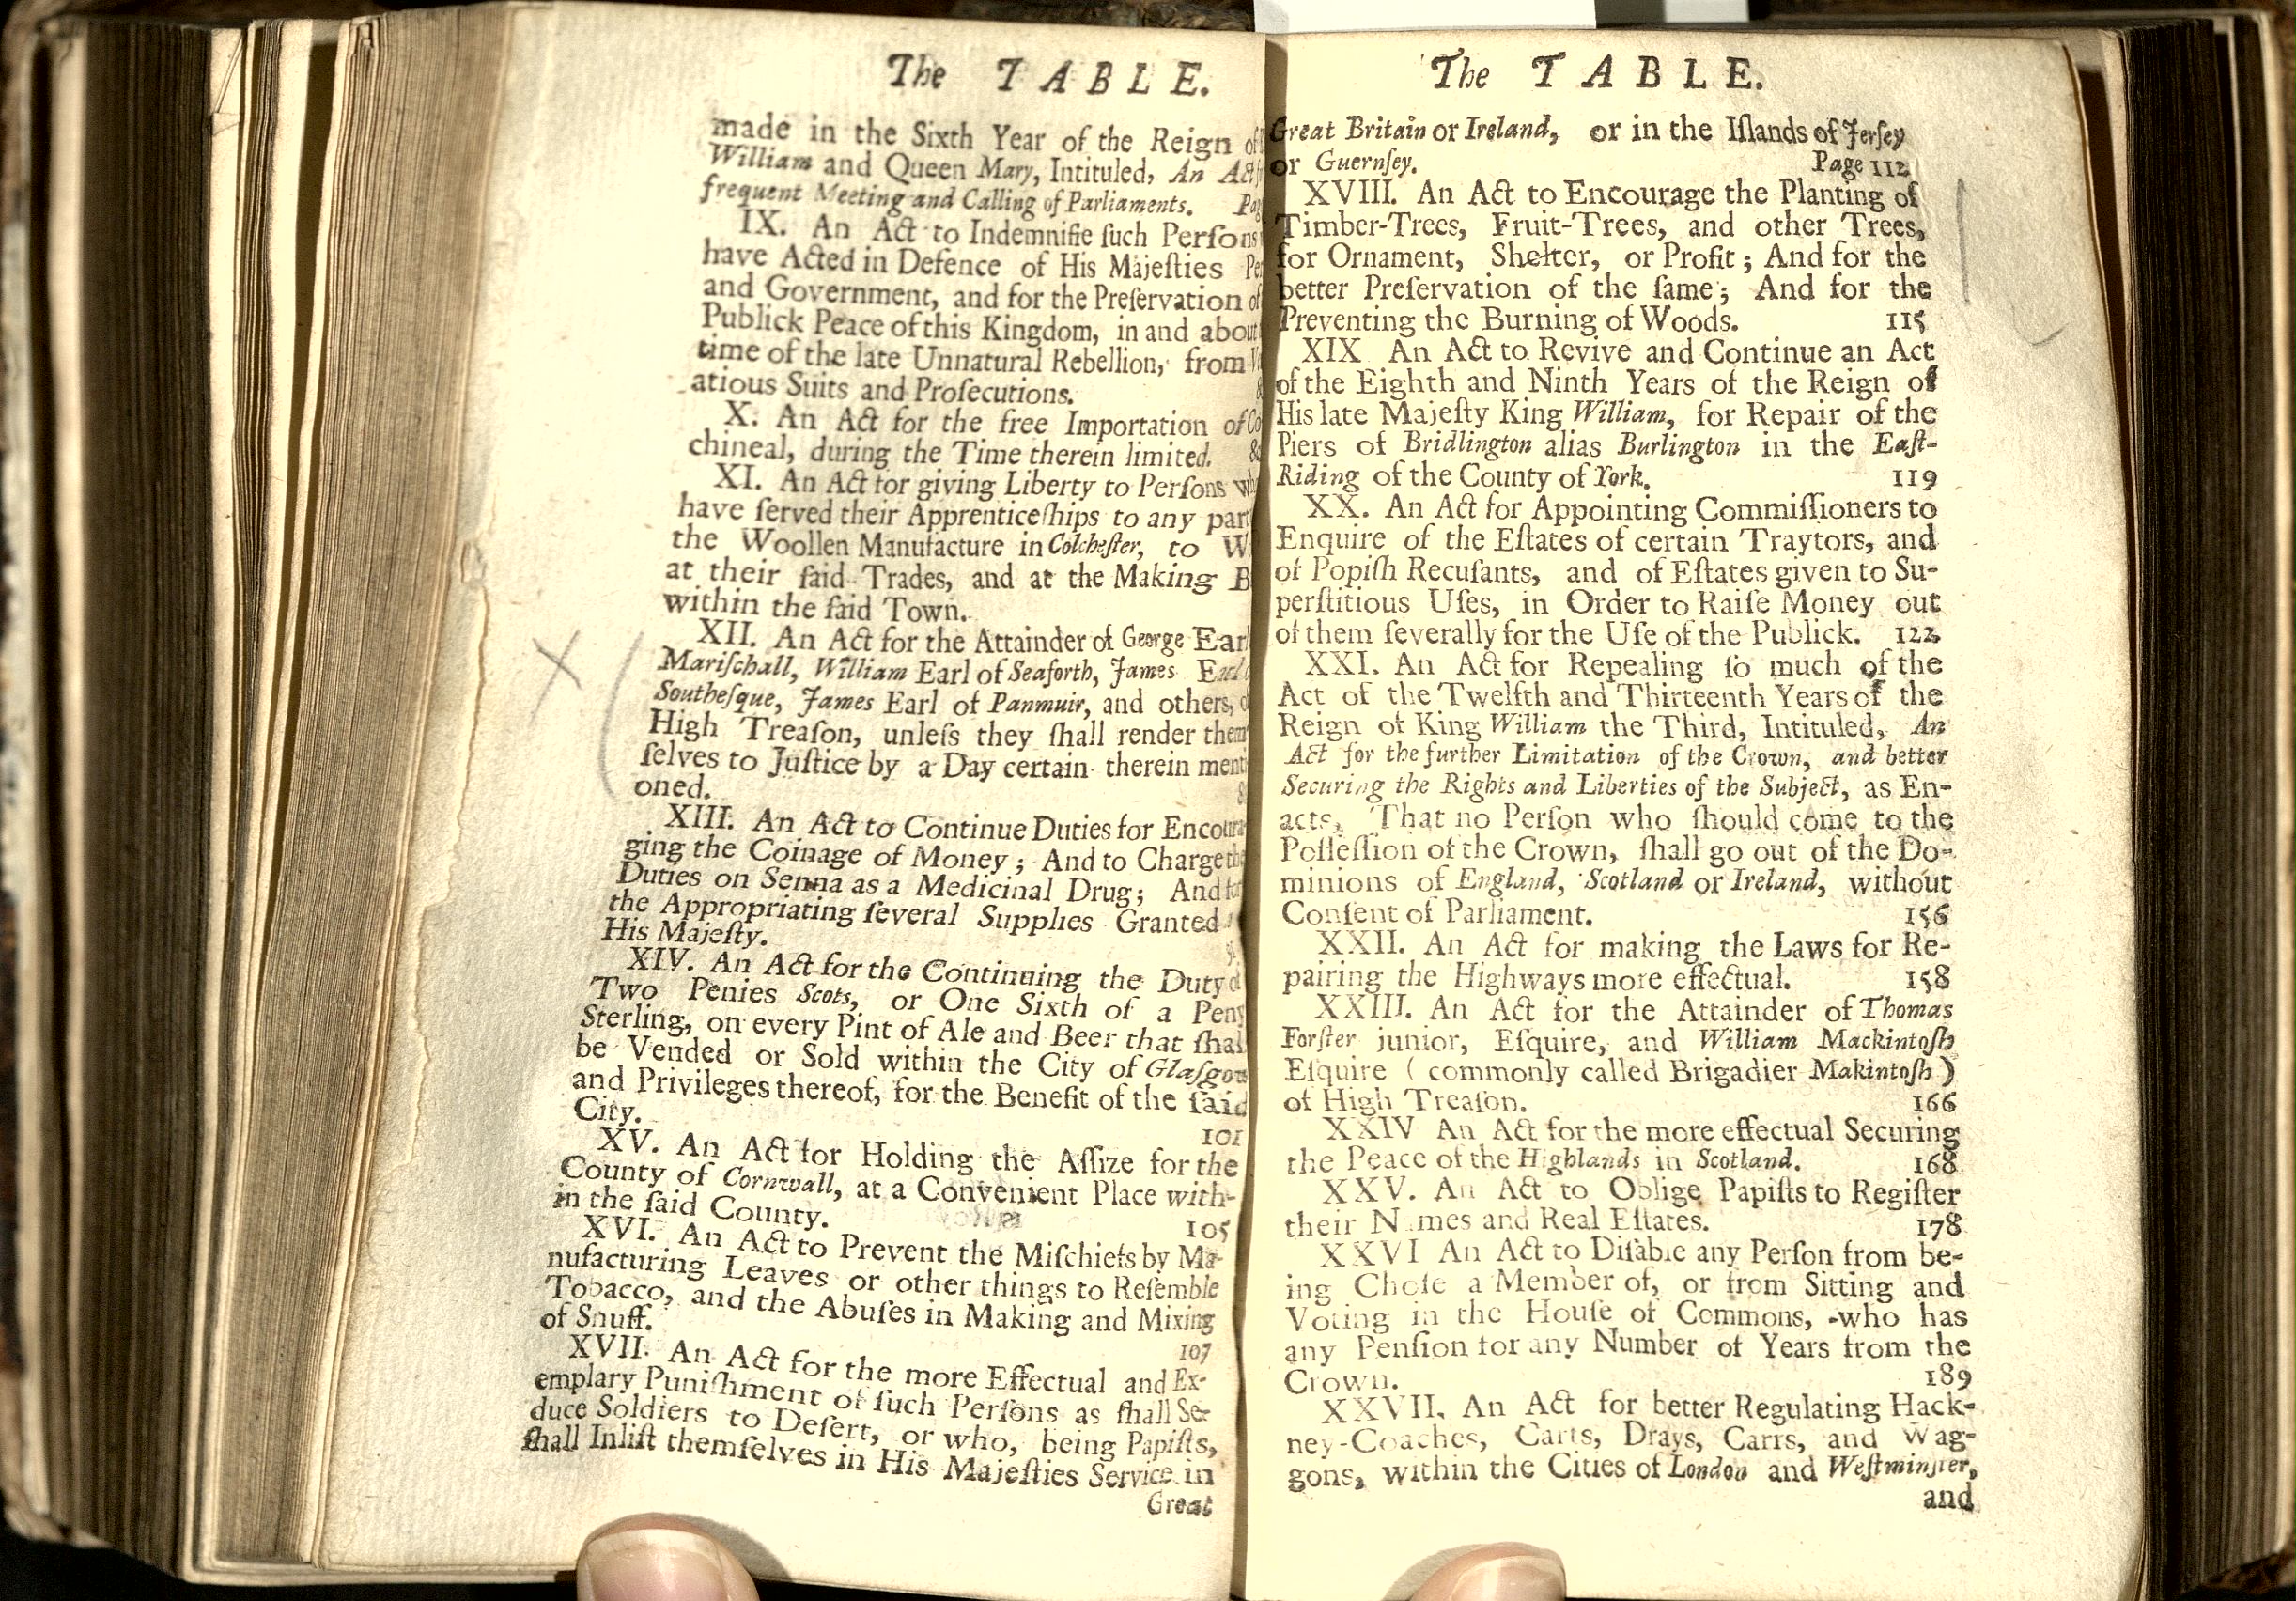 The TABLE.
made in the Sixth Year of the Reign of
William and Queen Mary, Intituled, An Act
frequent Meeting and Calling of Parliaments.
IX. An Act to Indemnifie ſuch Perſons
have Acted in Defence of His Majeſties
and Government, and for the Preſervation of
Publick Peace of this Kingdom, in and about
time of the late Unnatural Rebellion, from
atious Suits and Proſecutions.
X. An Act for the free Importation of Co
chineal, during the Time therein limited.
XI. An Act for giving Liberty to Perſons
have ſerved their Apprenticeſhips to any part
the Woollen Manufacture in Colcheſter, to
at their ſaid Trades, and at the Making
within the ſaid Town.
XII. An Act for the Attainder of George Earl
Mariſchall, William Earl of Seaforth, James Earl
Southeſque, James Earl of Panmuir, and others,
High Treaſon, unleſs they ſhall render them
ſelves to Juſtice by a Day certain therein menti
oned.
XIII. An Act to Continue Duties for Encoura
ging the Coinage of Money; And to Charge the
Duties on Senna as a Medicinal Drug; And for
the Appropriating ſeveral Supplies Granted
His Majeſty.
XIV. An Act for the Continuing the Duty of
Two Penies Scots, or One Sixth of a Peny
Sterling, on every Pint of Ale and Beer that ſhal
be Vended or Sold within the City of Glaſgow
and Privileges thereof, for the Benefit of the ſaid
City. 101
XV. An Act for Holding the Aſſize for the
County of Cornwall, at a Convenient Place with-
in the ſaid County. 105
XVI. An Act to Prevent the Miſchiefs by Ma-
nufacturing Leaves or other things to Reſemble
Tobacco, and the Abuſes in Making and Mixing
of Snuff. 107
XVII. An Act for the more Effectual and Ex-
emplary Puniſhment of ſuch Perſons as ſhall Se-
duce Soldiers to Deſert, or who, being Papiſts,
ſhall Inliſt themſelves in His Majeſties Service in
Great
The TABLE.
Great Britain or Ireland, or in the Iſlands of Jerſey
or Guernſey. Page 112
XVIII. An Act to Encourage the Planting of
Timber-Trees, Fruit-Trees, and other Trees,
for Ornament, Shelter, or Profit; And for the
better Preſervation of the ſame; And for the
Preventing the Burning of Woods. 115
XIX An Act to Revive and Continue an Act
of the Eighth and Ninth Years of the Reign of
His late Majeſty King William, for Repair of the
Piers of Bridlington alias Burlington in the Eaſt-
Riding of the County of York. 119
XX. An Act for Appointing Commiſſioners to
Enquire of the Eſtates of certain Traytors, and
of Popiſh Recuſants, and of Eſtates given to Su-
perſtitious Uſes, in Order to Raiſe Money out
of them ſeverally for the Uſe of the Publick. 122
XXI. An Act for Repealing ſo much of the
Act of the Twelfth and Thirteenth Years of the
Reign of King William the Third, Intituled, An
Act for the further Limitation of the Crown, and better
Securing the Rights and Liberties of the Subject, as En-
acts, That no Perſon who ſhould come to the
Poſſeſſion of the Crown, ſhall go out of the Do-
minions of England, Scotland or Ireland, without
Conſent of Parliament. 156
XXII. An Act for making the Laws for Re-
pairing the Highways more effectual. 158
XXIII. An Act for the Attainder of Thomas
Forſter junior, Eſquire, and William Mackintoſh
Eſquire (commonly called Brigadier Makintoſh)
of High Treaſon. 166
XXIV An Act for the more effectual Securing
the Peace of the Highlands in Scotland. 168
XXV. An Act to Oblige Papiſts to Regiſter
their Names and Real Eſtates. 178
XXVI An Act to Diſable any Perſon from be-
ing Choſe a Member of, or from Sitting and
Voting in the Houſe of Commons, who has
any Penſion for any Number of Years from the
Crown. 189
XXVII. An Act for better Regulating Hack-
ney-Coaches, Carts, Drays, Carrs, and Wag-
gons, within the Cities of London and Weſtminſter,
and